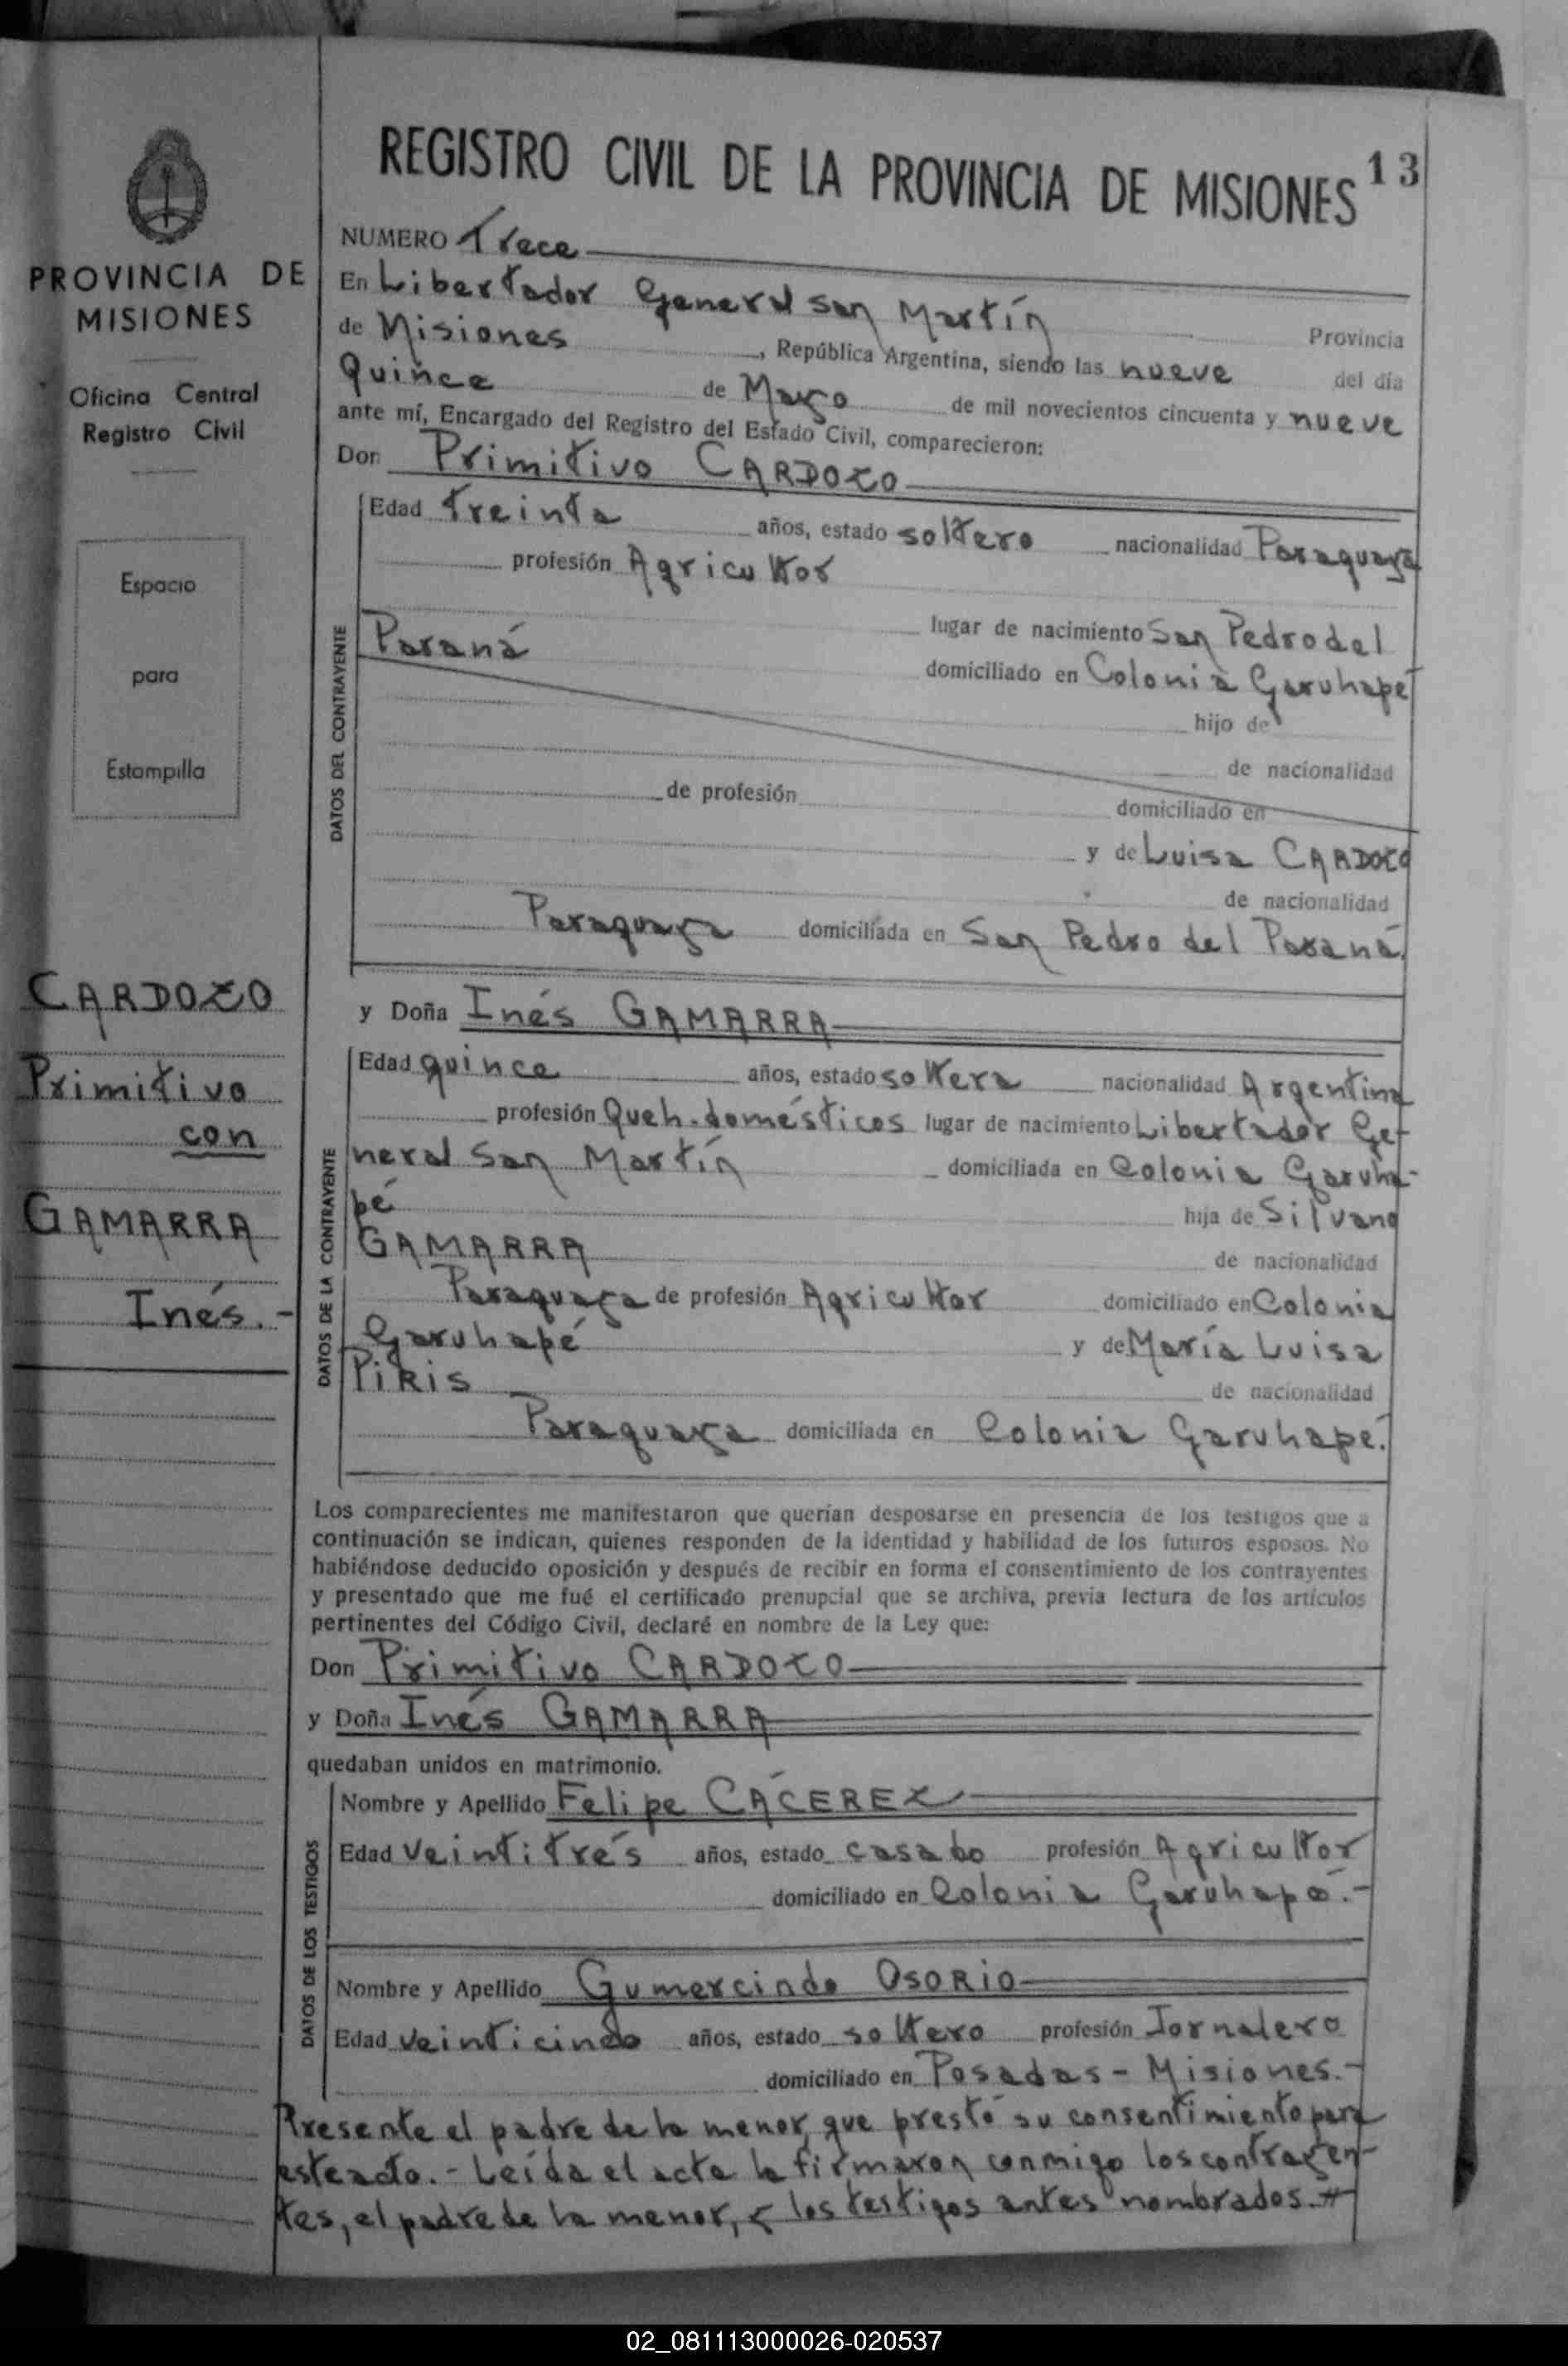 REGISTRO CIVIL DE LA PROVINCIA DE MISIONES 13
PROVINCIA DE
MISIONES
Oficina Central
Registro Civil
Espacio
para
Estampilla
CARDOZO
Primitivo
con
GAMARRA
Inés.-
NUMERO Trece
En Libertador General San Martín Provincia
de Misiones, República Argentina, siendo las nueve del día
Quince de Marzo de mil novecientos cincuenta y nueve
ante mí, Encargado del Registro del Estado Civil, comparecieron:
Don Primitivo CARDOZO
DATOS DEL CONTRAYENTE
Edad treinta años, estado soltero nacionalidad Paraguaya
profesión Agricultor
lugar de nacimiento San Pedro del
Paraná domiciliado en Colonia Garuhapé
hijo de
de nacionalidad
de profesión domiciliado en
y de Luisa CARDOZO
de nacionalidad
Paraguaya domiciliada en San Pedro del Paraná.
y Doña Inés GAMARRA
DATOS DE LA CONTRAYENTE
Edad quince años, estado soltera nacionalidad Argentina
profesión Queh.domésticos lugar de nacimiento Libertador Ge-
neral San Martín domiciliada en Colonia Garuha-
pé hija de Silvano
GAMARRA de nacionalidad
Paraguaya de profesión Agricultor domiciliado en Colonia
Garuhapé y de María Luisa
PIRIS de nacionalidad
Paraguaya domiciliada en Colonia Garuhapé.
Los comparecientes me manifestaron que querían desposarse en presencia de los testigos que a
continuación se indican, quienes responden de la identidad y habilidad de los futuros esposos. No
habiéndose deducido oposición y después de recibir en forma el consentimiento de los contrayentes
y presentado que me fué el certificado prenupcial que se archiva, previa lectura de los artículos
pertinentes del Código Civil, declaré en nombre de la Ley que:
Don Primitivo CARDOZO
y Doña Inés GAMARRA
quedaban unidos en matrimonio.
DATOS DE LOS TESTIGOS
Nombre y Apellido Felipe CÁCEREZ
Edad veintitrés años, estado casado profesión Agricultor
domiciliado en Colonia Garuhapé.-
Nombre y Apellido Gumercindo OSORIO
Edad veinticinco años, estado soltero profesión Jornalero
domiciliado en Posadas - Misiones.-
Presente el padre de la menor, que prestó su consentimiento para
este acto.- Leída el acta la firmaron conmigo los contrayen-
tes, el padre de la menor, y los testigos antes nombrados.#
02_081113000026-020537